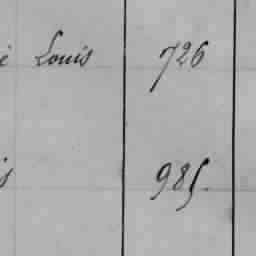 é Louis 726
is 985.